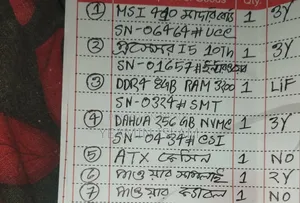 Qty.
① MSI 410 মাদারবোর্ড 1 3Y
SN-06464#UCC
② প্রসেসর I5 10th 1 3Y
SN-01657#
③ DDR4 8GB RAM 3200 1 LiF
SN-0324#SMT
④ DAHUA 256 GB NVMC 1 3Y
SN-0434#CSI
⑤ ATX কেসিন 1 NO
⑥ পাওয়ার সাপ্লাই 1 2Y
⑦ পাওয়ার ক্যাবল 1 NO